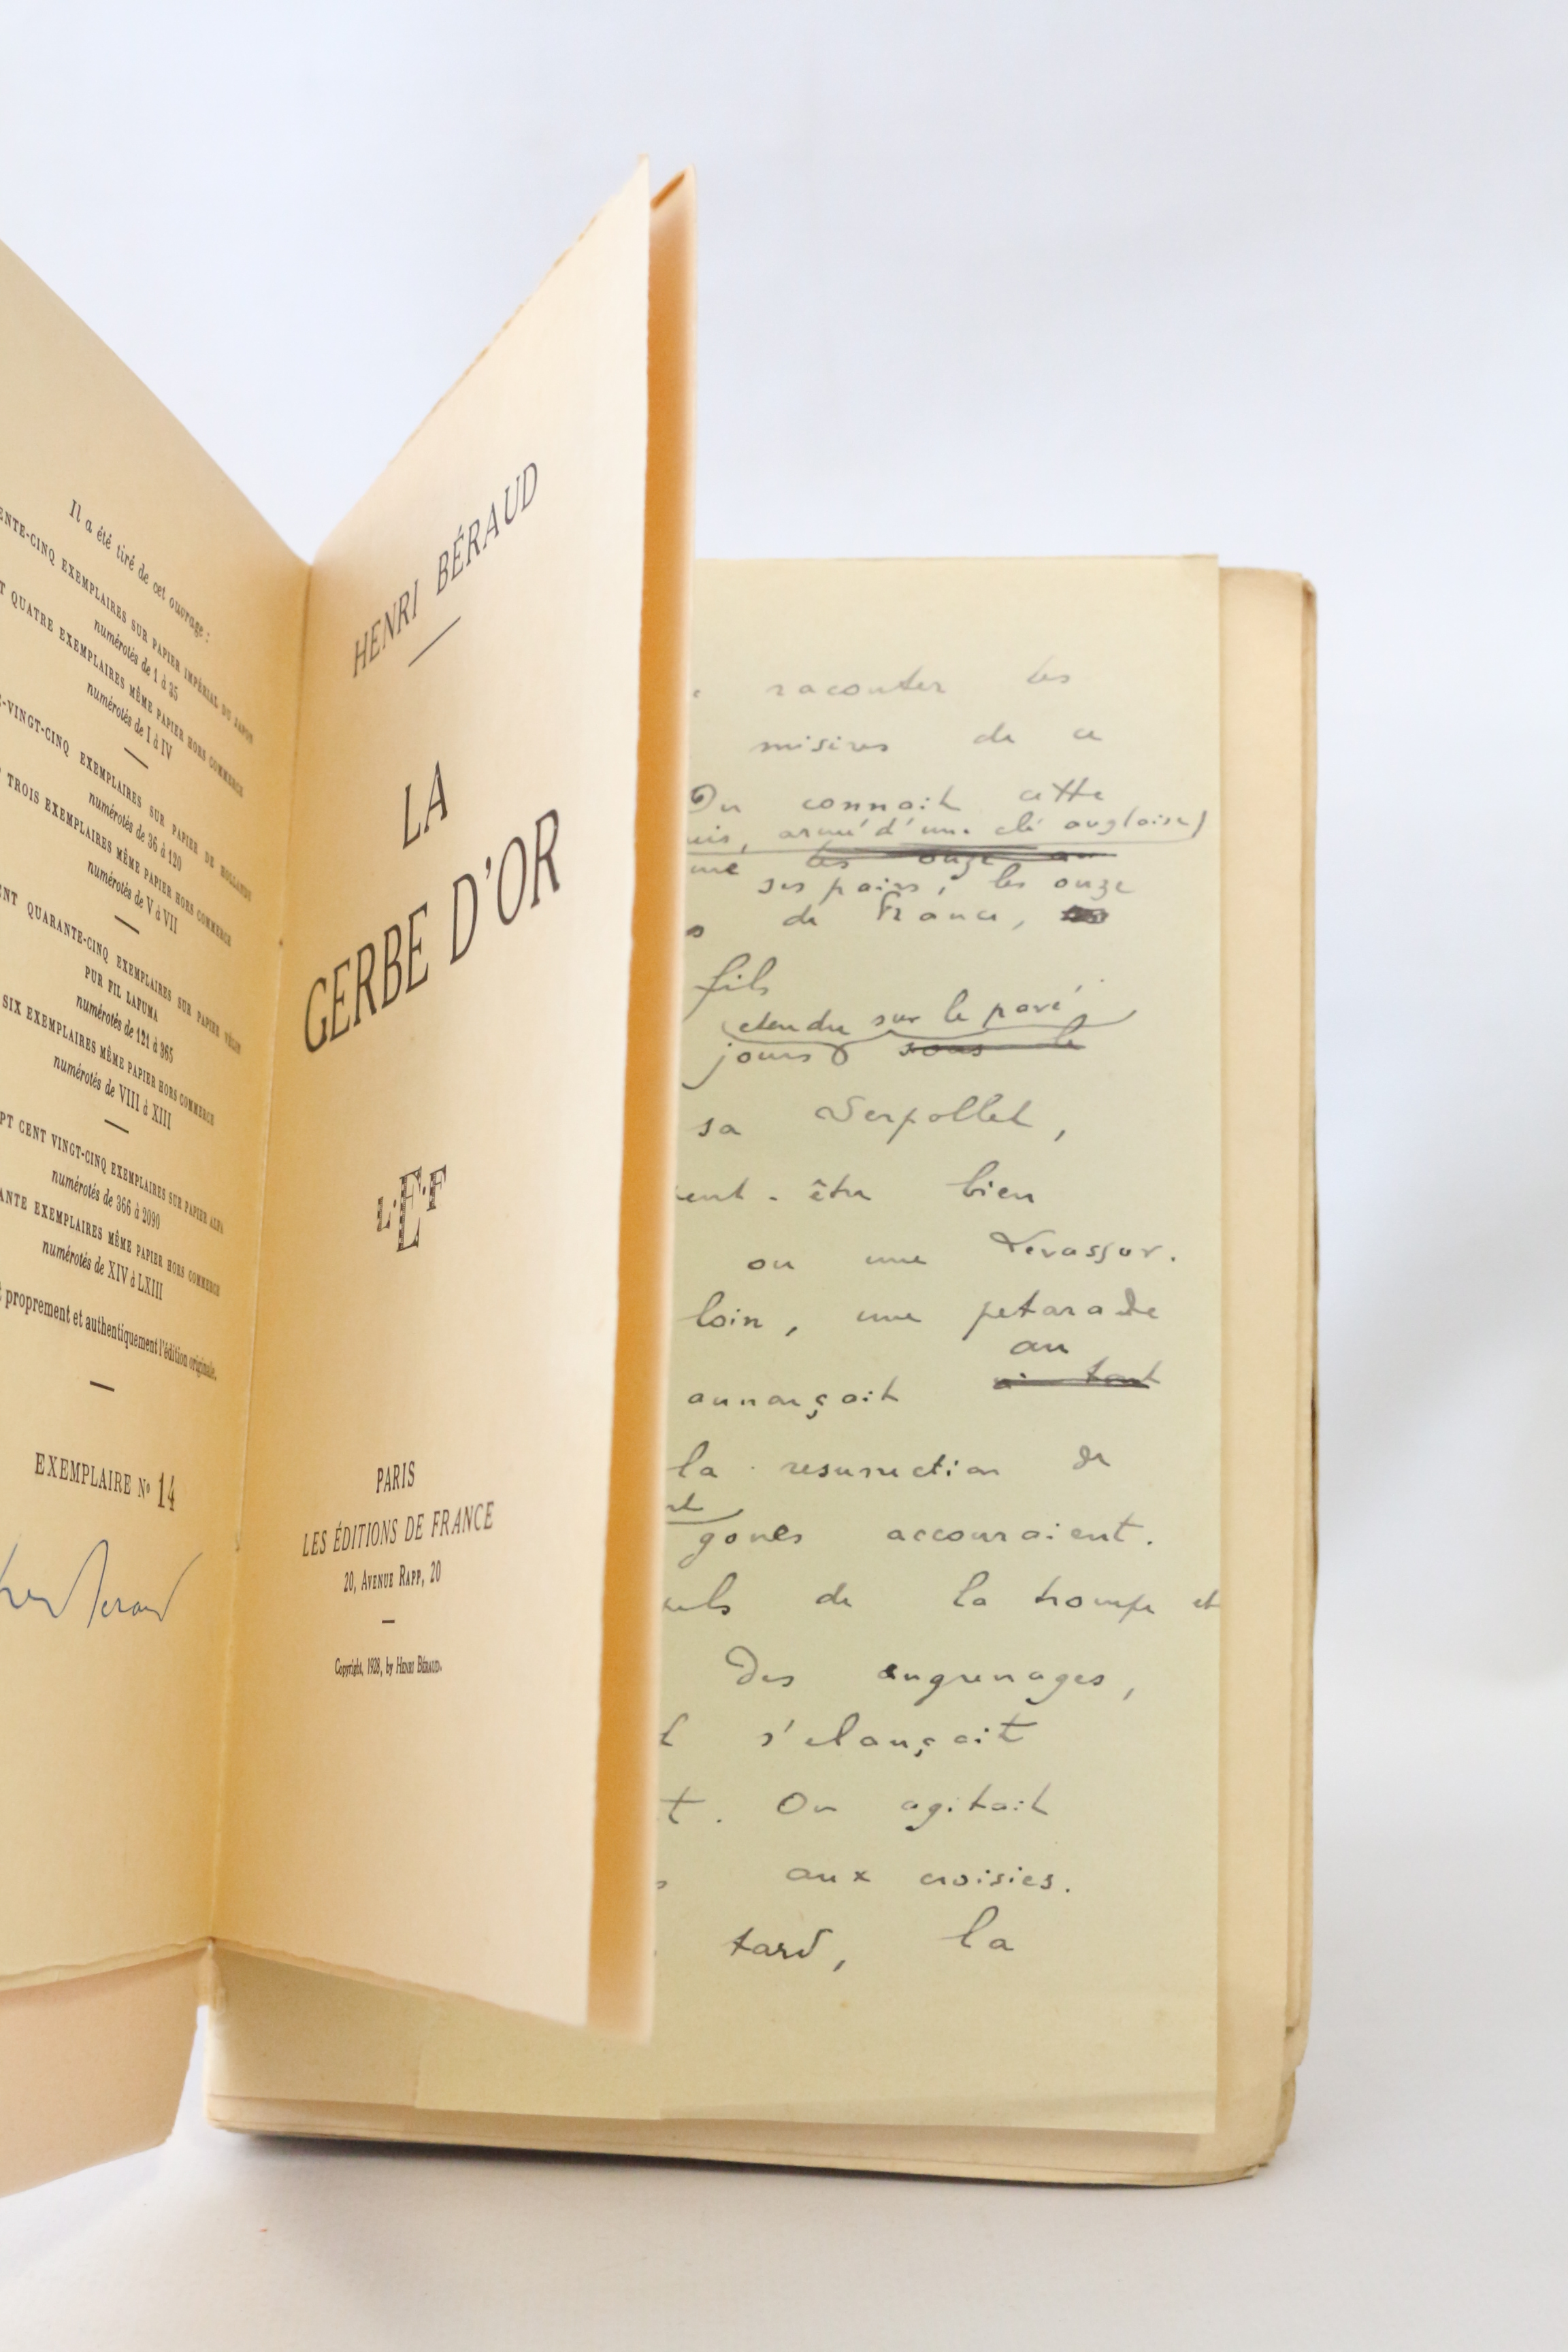 Il a été tiré de cet ouvrage :
ENTE-CINQ EXEMPLAIRES SUR PAPIER IMPÉRIAL DU JAPON
numérotés de 1 à 35
T QUATRE EXEMPLAIRES MÊME PAPIER HORS COMMERCE
numérotés de I à IV
-VINGT-CINQ EXEMPLAIRES SUR PAPIER DE HOLLANDE
numérotés de 36 à 120
TROIS EXEMPLAIRES MÊME PAPIER HORS COMMERCE
numérotés de V à VII
NT QUARANTE-CINQ EXEMPLAIRES SUR PAPIER VÉLIN
PUR FIL LAFUMA
numérotés de 121 à 365
SIX EXEMPLAIRES MÊME PAPIER HORS COMMERCE
numérotés de VIII à XIII
PT CENT VINGT-CINQ EXEMPLAIRES SUR PAPIER ALFA
numérotés de 366 à 2090
ANTE EXEMPLAIRES MÊME PAPIER HORS COMMERCE
numérotés de XIV à LXIII
t proprement et authentiquement l'édition originale.
EXEMPLAIRE No 14
HENRI BÉRAUD
LA
GERBE D'OR
L·E·F
PARIS
LES ÉDITIONS DE FRANCE
20, AVENUE RAPP, 20
Copyright, 1928, by HENRI BÉRAUD.
raconter les
misères de ce
On connait cette
armé d'une clé anglaise)
les onze
ses pairs, les onze
de France,
fils
etendu sur le pavé,
jours sous le
sa Serpollet,
ent-être bien
ou une Levassor.
loin, une petarade
au
annonçait
la resurrection de
gones accouraient.
de la trompe et
Des engrenages,
s'elançait
t. On agitait
aux croisies.
tard, la